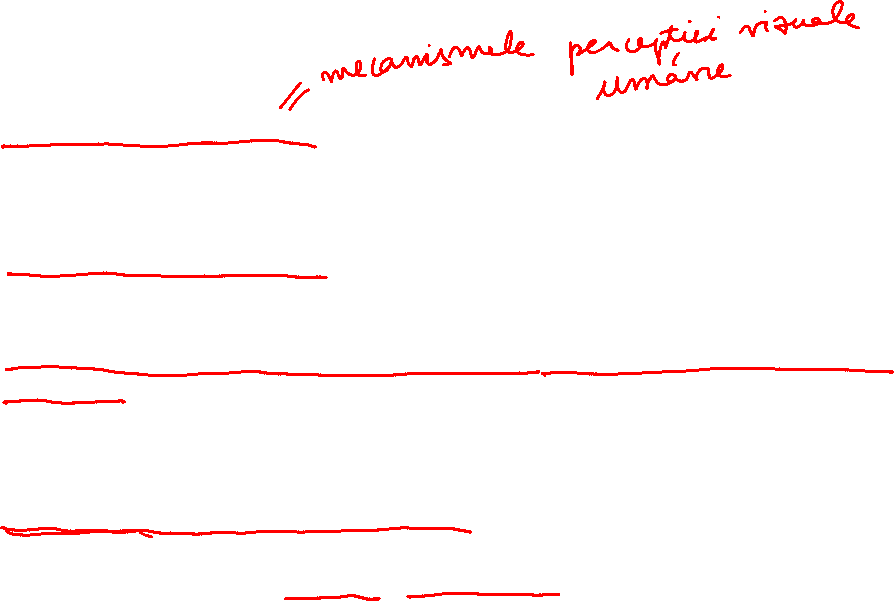 mecanismele percepției vizuale
umane